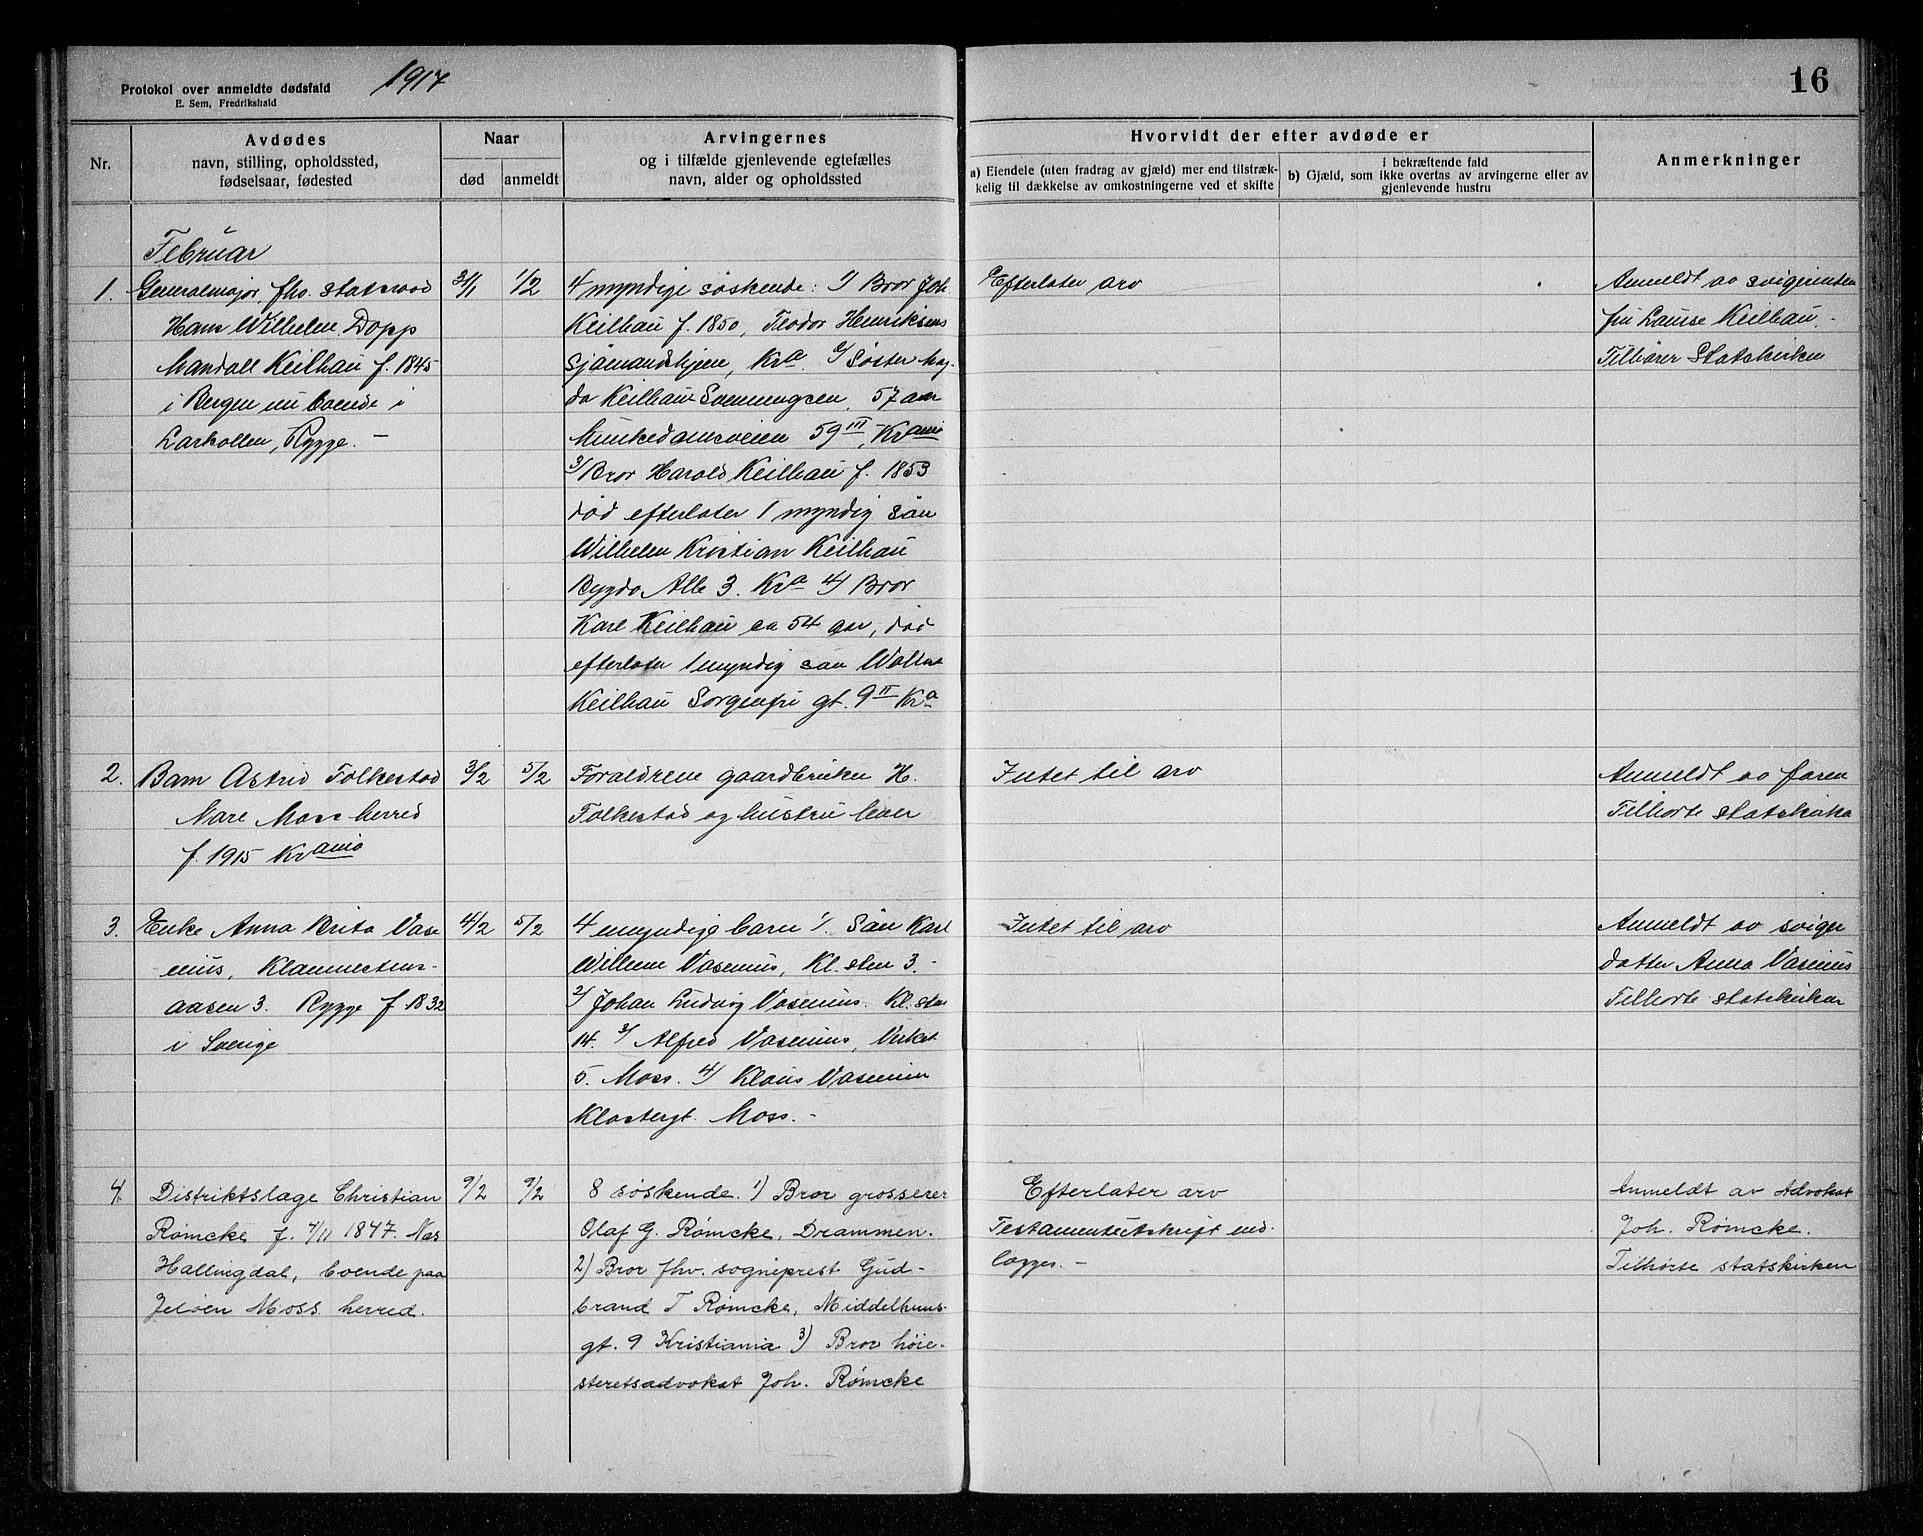 Protokol over anmeldte dødsfald
E. Sem, Fredrikshald
1917
16
Nr.
Avdødes
navn, stilling, opholdssted,
fødselsaar, fødested
Naar
død
anmeldt
Arvingernes
og i tilfælde gjenlevende egtefælles
navn, alder og opholdssted
Hvorvidt der efter avdøde er
a) Eiendele (uten fradrag av gjæld) mer end tilstræk-
kelig til dækkelse av omkostningerne ved et skifte
i bekræftende fald
b) Gjæld, som ikke overtas av arvingerne eller av
gjenlevende hustru
Anmerkninger
Februar
1.
Generalmajor, fhv. statsraad
Hans Wilhelm Dopp
Mandall Keilhau f. 1845
i Bergen nu boende i
Larkollen, Rygge. -
31/1
1/2
4 myndige søskende: 1) Bror Joh.
Keilhau f. 1850, Teodor Henriksens
Sjømandshjem, Kra. 2/ Søster Mag-
da Keilhau Svenningsen, 57 aar
Munkedamsveien 59 III, Krania
3/ Bror Harald Keilhau f. 1853
død efterlater 1 myndig søn
Wilhelm Kristian Keilhau
Bygdø Alle 3. Kra 4) Bror
Karl Keilhau ca 54 aar, død
efterlater 1 myndig søn
Keilhau Sorgenfri gt. 9 II Kra
Efterlater arv
Anmeldt av svigerinden
fru Louise Keilhau. -
Tilhører Statskirken
2.
Barn Astrid Folkestad
Nare Moss herred
f. 1915 Krania
3/2
5/2
Forældrene gaardbruker H.
Folkestad og hustru lever
Intet til arv
Anmeldt av faren
Tilhørte statskirken
3.
Enke Anna Brita Vase
nius, Klommestens-
aasen 3. Rygge f 1832
i Sverige
4/2
5/2
4 myndige barn 1/. Søn Karl
Willem Vasenius, Kl. sten 3. -
2/ Johan Ludvig Vasenius. Kl. sten
14. 3/ Alfred Vasenius, Verket
5. Moss. 4/ Klaus Vasenius
Klostergt. Moss. -
Intet til arv
Anmeldt av sviger
datter Anna Vasenius
Tilhørte statskirken
4.
Distriktslæge Christian
Rømcke f. 4/11 1847. Nes
Hallingdal, boende paa
Jeløen Moss herred.
9/2
9/2
8 søskende. 1) Bror grosserer
Olaf G. Rømcke, Drammen.
2) Bror fhv. sogneprest Gud-
brand T Rømcke, Middelthuns-
gt. 9 Kristiania 3) Bror høie-
steretsadvokat Joh. Rømcke
Efterlater arv
Testamentutskrift ved-
lægges. -
Anmeldt av Advokat
Joh. Rømcke.
Tilhørte statskirken